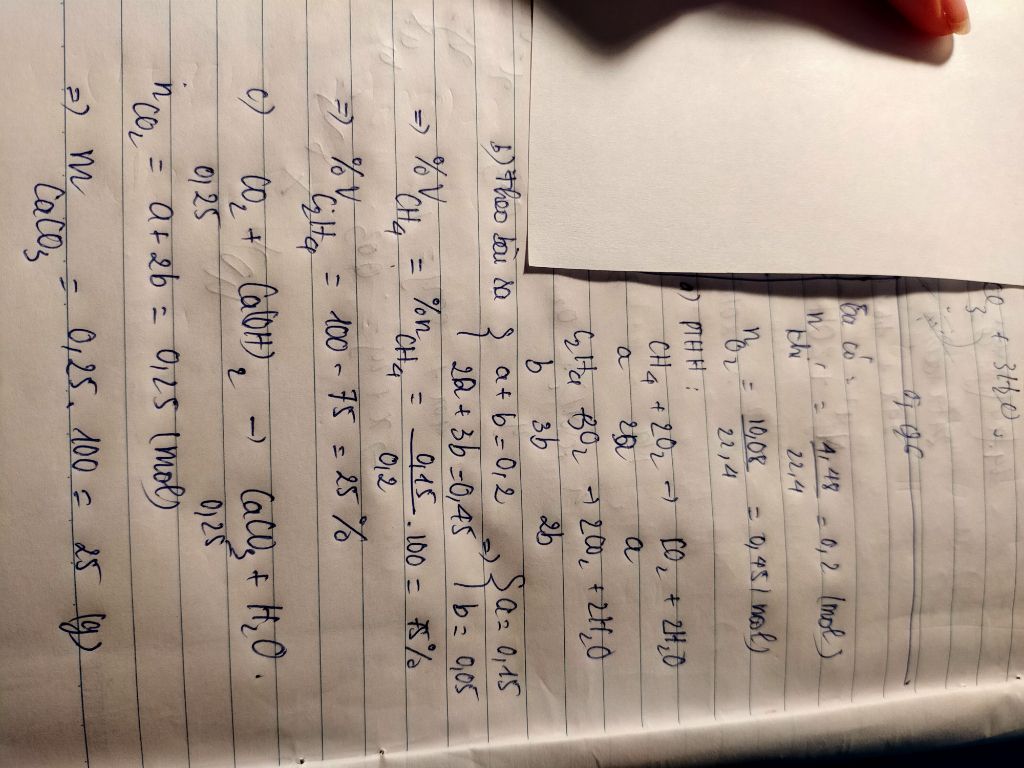 + 3H₂O
Ta có:
n = 4,48/22,4 = 0,2 (mol)
nO₂ = 10,08/22,4 = 0,45 (mol)
a) PTHH:
CH₄ + 2O₂ → CO₂ + 2H₂O
a 2a a
C₂H₄ + 3O₂ → 2CO₂ + 2H₂O
b 3b 2b
b) Theo bài ra { a + b = 0,2 => { a = 0,15
2a + 3b = 0,45 b = 0,05
=> %V CH₄ = %n CH₄ = 0,15/0,2 . 100 = 75%
=> %V C₂H₄ = 100 - 75 = 25%
c) CO₂ + Ca(OH)₂ → CaCO₃ + H₂O.
0,25 0,25
nCO₂ = a + 2b = 0,25 (mol)
=> m CaCO₃ = 0,25 . 100 = 25 (g)